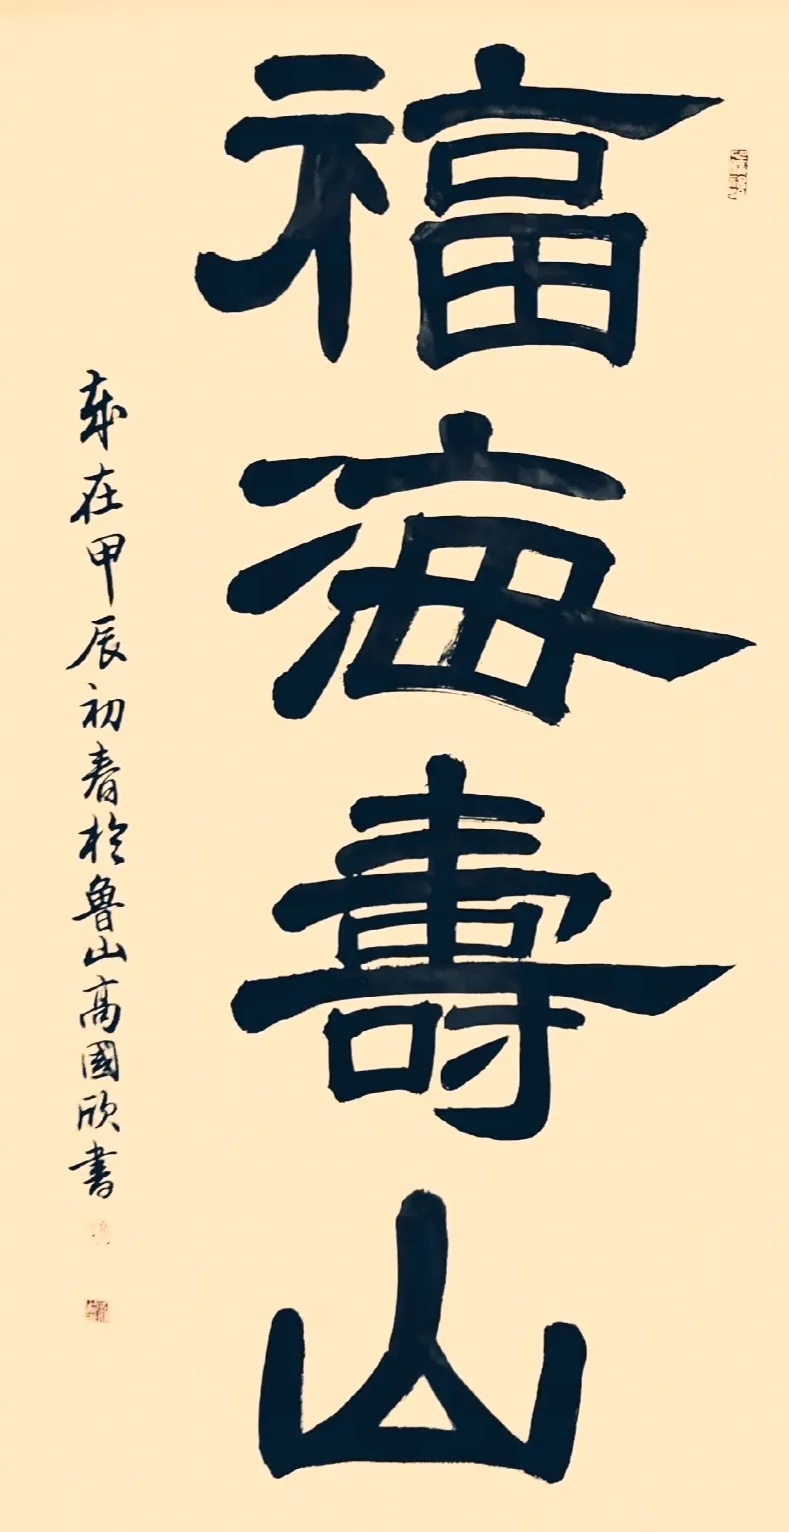 福海壽山
歲在甲辰初春於魯山高國欣書